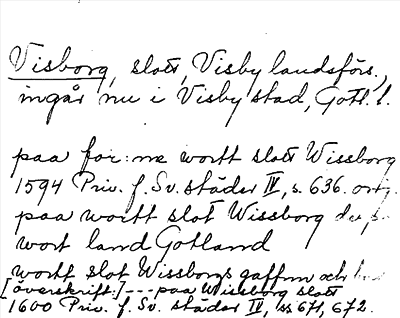 Visborg, slott, Visby landsförs.,
ingår nu i Visby stad, Gotl. l.
paa for:ne wortt slott Wissborg
1594 Priv. f. Sv. städer IV, s. 636. orig.
paa wortt slot Wissborg
wort land Gotland
wortt slot Wissborgs gaffnn och
[överskrift:] --- paa Wissborg slott
1600 Priv. f. Sv. städer IV, ss 671, 672.